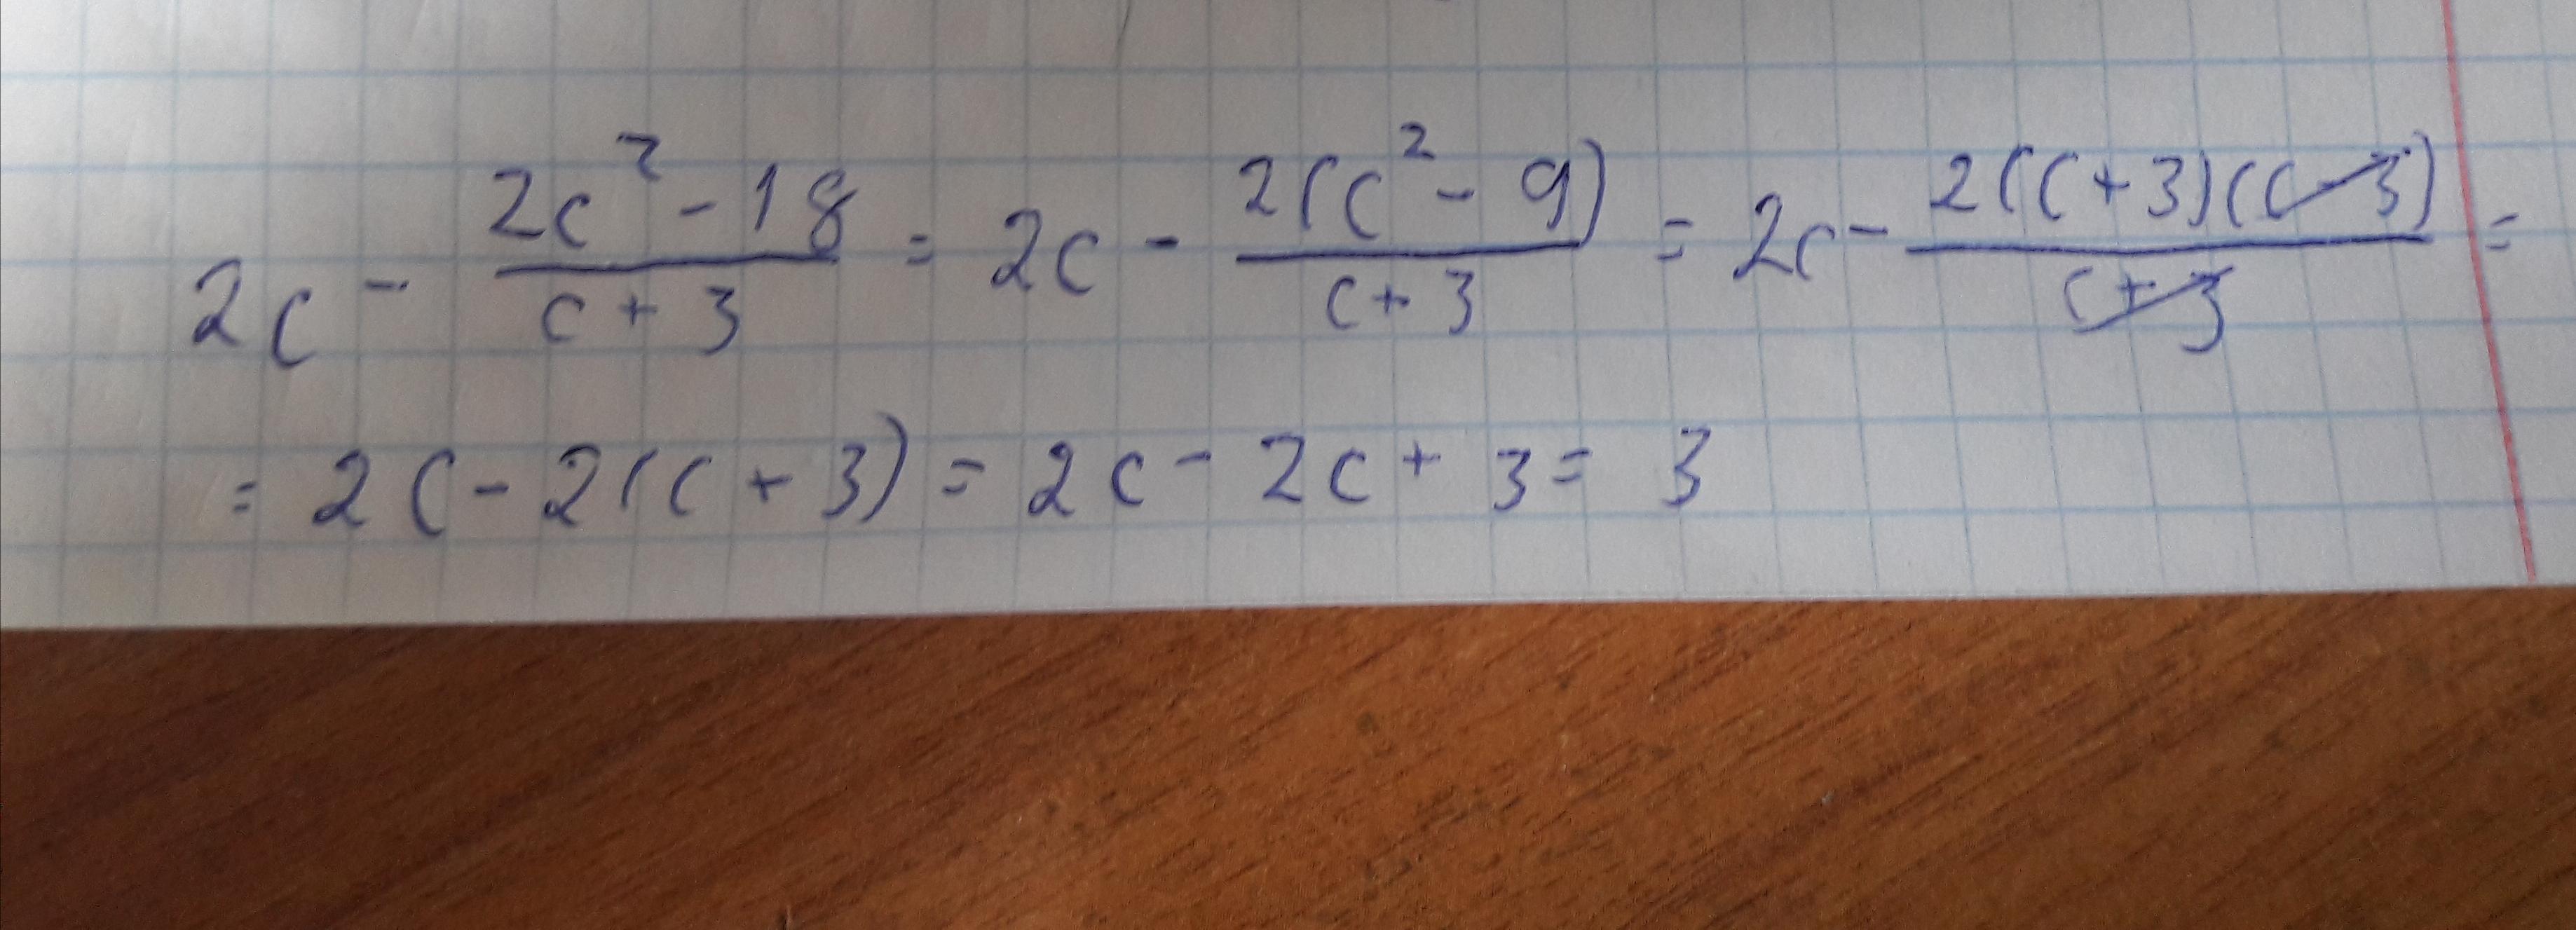 2c - \frac{2c^2 - 18}{c + 3} = 2c - \frac{2(c^2 - 9)}{c + 3} = 2c - \frac{2(c + 3)(\cancel{c - 3})}{\cancel{c + 3}} =
= 2c - 2(c + 3) = 2c - 2c + 3 = 3